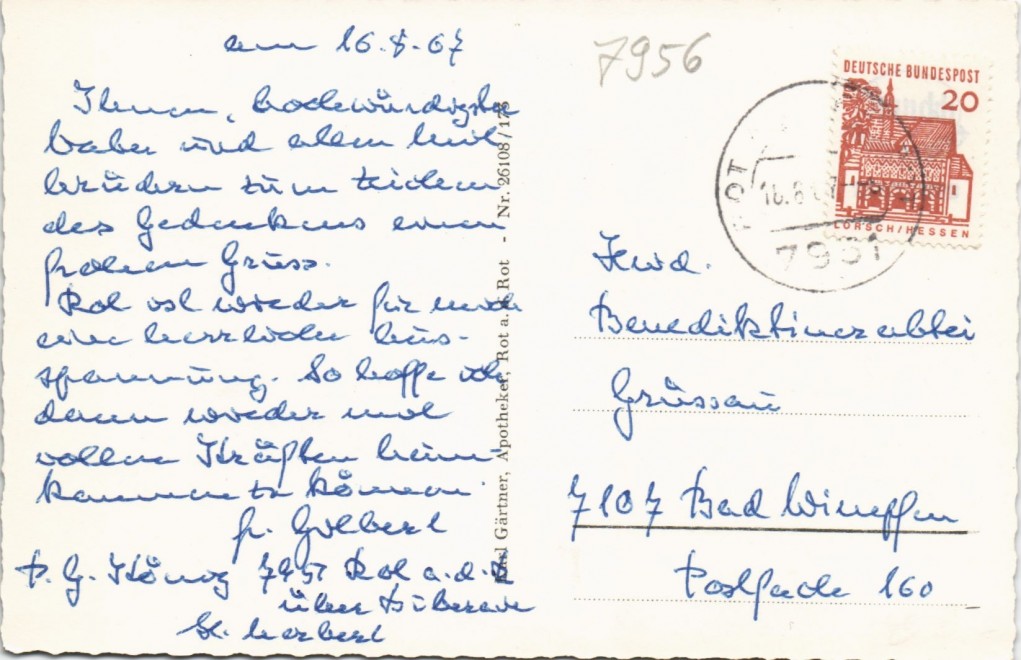 am 16.8.67
Ihnen, hochwürdigster
Vater und allen Mit
brüdern zum Zeichen
des Gedenkens einen
frohen Gruss.
Rot ist wieder für mich
eine herrliche Aus-
spannung. So hoffe ich
dann wieder mit
vollen Kräften heim-
kommen zu können.
fr. Gilbert
P. G. König 7951 Rot a.d.R
über Biberach
St. Norbert
Karl Gärtner, Apotheker, Rot a. d. Rot - Nr. 26108/178
7956
DEUTSCHE BUNDESPOST
20
LORSCH/HESSEN
ROT
16.8.67
7951
Hwd.
Benediktinerabtei
Grüssau
7107 Bad Wimpfen
Postfach 160